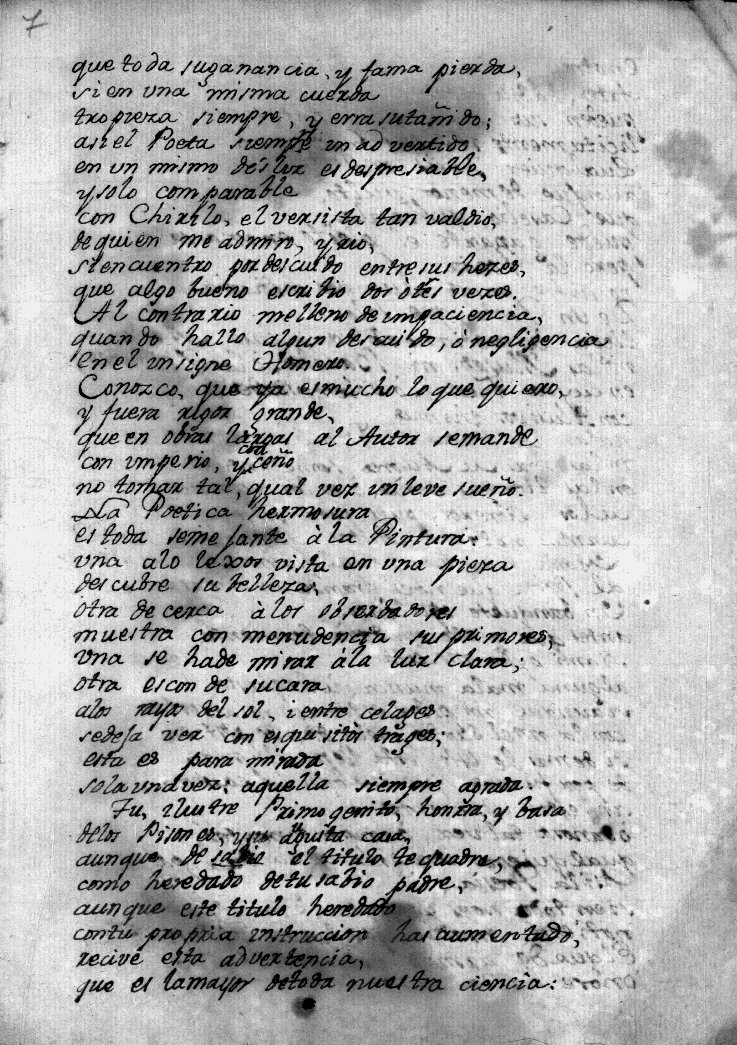 7
que toda su ganancia, y fama pierda,
si en vna misma cuerda
tropieza siempre, y erra su tañido;
asi el Poeta siempre inadvertido
en un mismo desliz es despresiable,
y solo comparable
con Chirilo, el versista tan valdio,
de quien me admiro, y rio,
si encuentro por descuido entre sus hezes,
que algo bueno escribio dos ò tres vezes.
Al contrario me lleno de impaciencia,
quando hallo algun descuido, ò negligencia
en el insigne Homero.
Conozco, que ya es mucho lo que quiero,
y fuera rigor grande,
que en obras largas al Autor se mande
con imperio, y con ceño
no tomar tal, qual vez un leve sueño.
La Poetica hermosura
es toda semejante à la Pintura:
vna a lo lexos vista en una pieza
descubre su belleza,
otra de cerca à los observadores
muestra con menudencia sus primores,
vna se ha de mirar à la luz clara;
otra esconde su cara
a los rayos del sol, i entre celages
se deja ver con esquisitos trages;
esta es para mirada
sola una vez; aquella siempre agrada.
Tu, ilustre Primogenito, honrra, y basa
de los Pisones, y su augusta casa,
aunque de sabio el titulo te quadre,
como heredado de tu sabio padre,
aunque este titulo heredado
con tu propria instruccion has aumentado,
recive esta advertencia,
que es la mayor de toda nuestra ciencia: